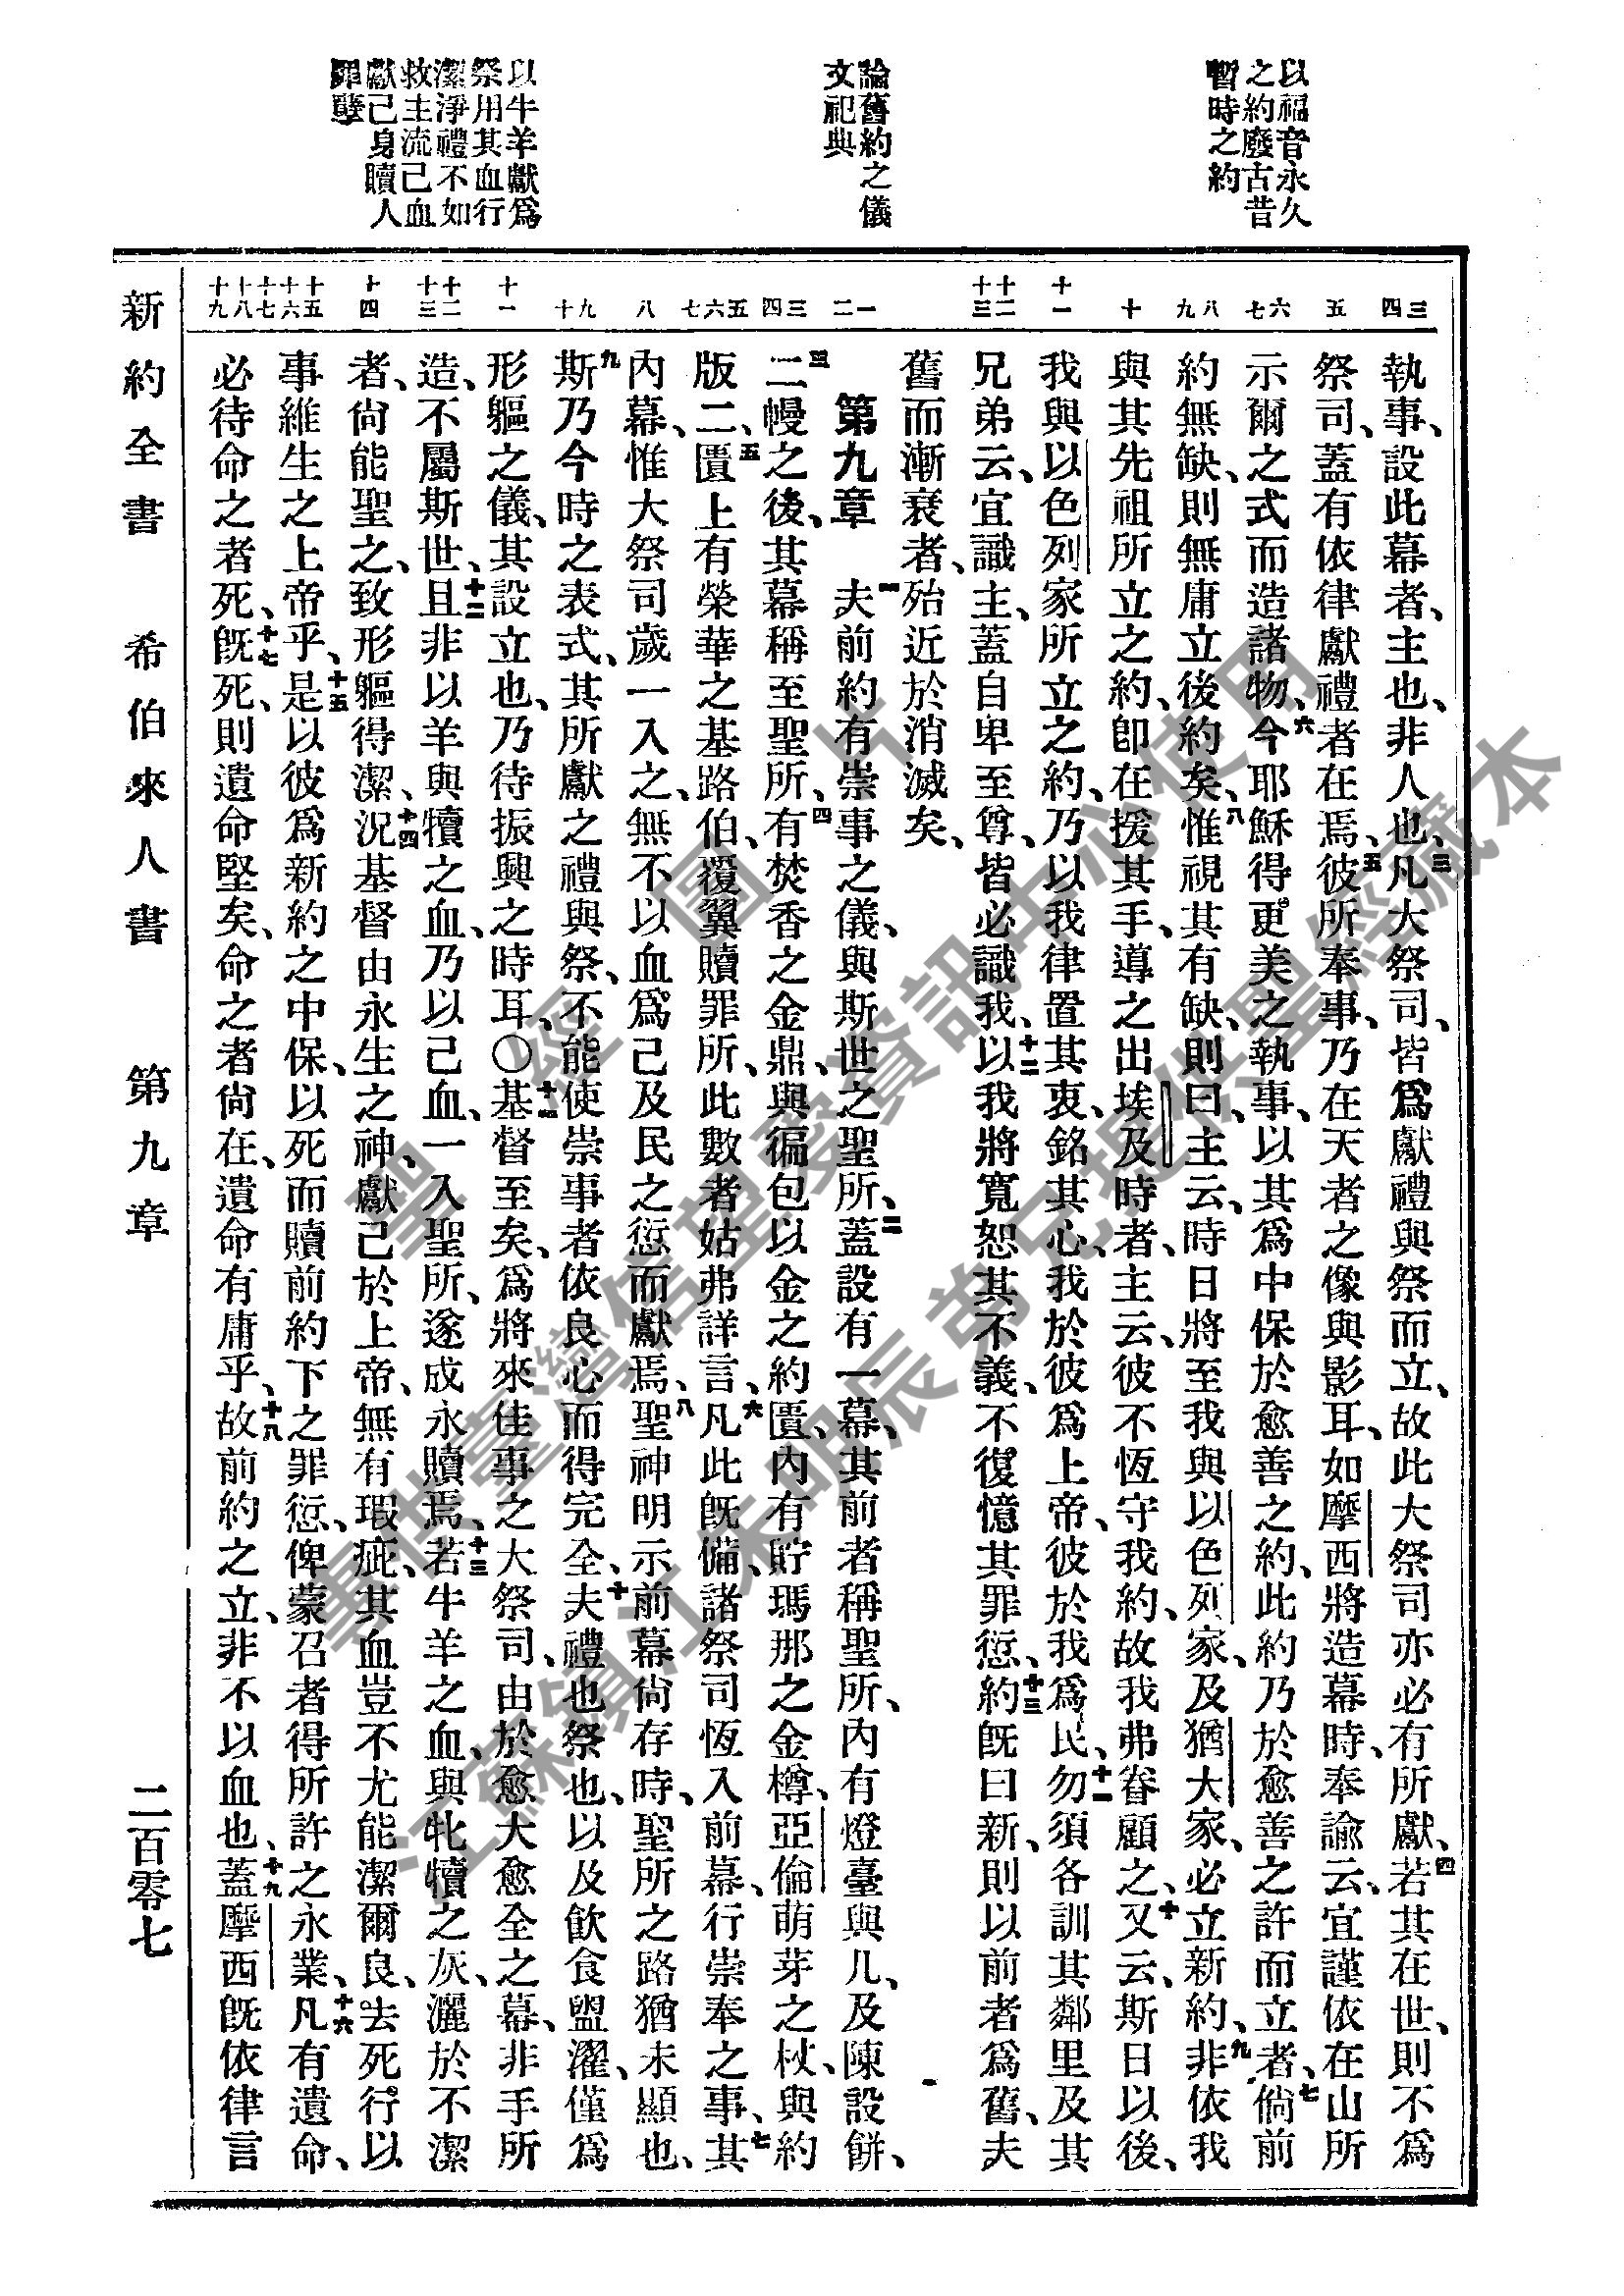 以福音永久
之約廢古昔
暫時之約
論舊約之儀
文祀典
以牛羊獻爲
祭用其血行
潔淨禮不如
救主流己血
獻己身贖人
罪孽
三 四 五 六 七 八 九 十 十一 十二 十三 一 二 三 四 五 六 七 八 九 十 十一 十二 十三 十四 十五 十六 十七 十八 十九
執事、設此幕者、主也、非人也、三凡大祭司、皆爲獻禮與祭而立、故此大祭司亦必有所獻、四若其在世、則不爲
祭司、蓋有依律獻禮者在焉、五彼所奉事、乃在天者之像與影耳、如摩西將造幕時、奉諭云、宜謹依在山所
示爾之式而造諸物、六今耶穌得更美之執事、以其爲中保於愈善之約、此約乃於愈善之許而立者、七倘前
約無缺、則無庸立後約矣、八惟視其有缺、則曰、主云、時日將至、我與以色列家、及猶大家、必立新約、九非依我
與其先祖所立之約、卽在援其手、導之出埃及時者、主云、彼不恆守我約、故我弗眷顧之、十又云、斯日以後、
我與以色列家所立之約、乃以我律置其衷、銘其心、我於彼爲上帝、彼於我爲民、十一勿須各訓其鄰里及其
兄弟云、宜識主、蓋自卑至尊、皆必識我、十二以我將寬恕其不義、不復憶其罪愆、十三約旣曰新、則以前者爲舊、夫
舊而漸衰者、殆近於消滅矣、
第九章 一夫前約有崇事之儀、與斯世之聖所、二蓋設有一幕、其前者稱聖所、內有燈臺與几、及陳設餅、
三二幔之後、其幕稱至聖所、四有焚香之金鼎、與徧包以金之約匱、內有貯瑪那之金樽、亞倫萌芽之杖、與約
版二、五匱上有榮華之基路伯、覆翼贖罪所、此數者姑弗詳言、六凡此旣備、諸祭司恆入前幕、行崇奉之事、七其
內幕、惟大祭司歲一入之、無不以血爲己及民之愆而獻焉、八聖神明示前幕尙存時、聖所之路猶未顯也、
九斯乃今時之表式、其所獻之禮與祭、不能使崇事者依良心而得完全、十夫禮也祭也、以及飮食盥濯、僅爲
形軀之儀、其設立也、乃待振興之時耳、〇十一基督至矣、爲將來佳事之大祭司、由於愈大愈全之幕、非手所
造、不屬斯世、十二且非以羊與犢之血、乃以己血、一入聖所、遂成永贖焉、十三若牛羊之血、與牝犢之灰、灑於不潔
者、尙能聖之、致形軀得潔、十四況基督由永生之神、獻己於上帝、無有瑕疵、其血豈不尤能潔爾良、去死行以
事維生之上帝乎、十五是以彼爲新約之中保、以死而贖前約下之罪愆、俾蒙召者得所許之永業、十六凡有遺命、
必待命之者死、十七旣死、則遺命堅矣、命之者尙在、遺命有庸乎、十八故前約之立、非不以血也、十九蓋摩西旣依律言
新約全書 希伯來人書 第九章 二百零七
聖 經 圖 片
專供臺灣信望愛資訊中心使用
江蘇鎮江朱明辰弟兄提供聖經藏本